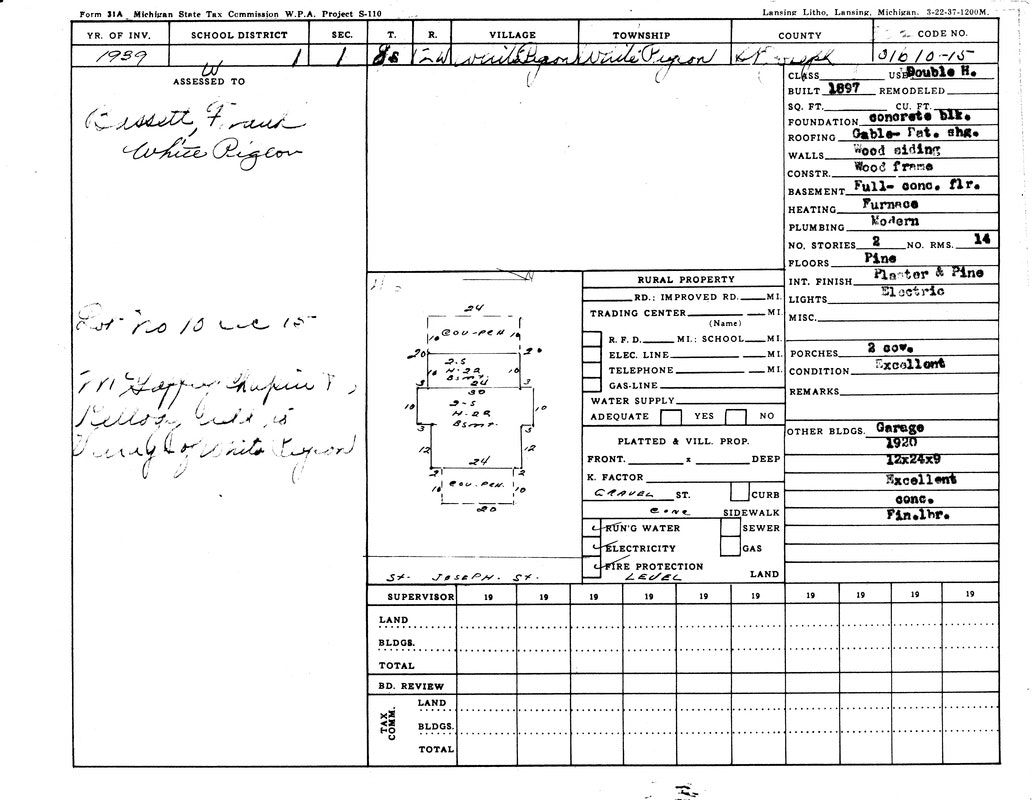 Form 31A Michigan State Tax Commission W.P.A. Project S-110
Lansing Litho, Lansing, Michigan. 3-22-37-1200M.
YR. OF INV. SCHOOL DISTRICT SEC. T. R. VILLAGE TOWNSHIP COUNTY CODE NO.
1939 W 1 1 8s 12W White Pigeon White Pigeon St Joseph 31610-15
ASSESSED TO
Bissett, Frank
White Pigeon
Lot No 10 15
Chapin
Kellogg
of White Pigeon
N
24
10 COV-PCH 10
20 20
2-S
H-22
Bsmt.
10 10
24
3 30 3
10 2-S 10
H-22
Bsmt.
3 3
12 12
24
2 2
10 COV-PCH. 10
20
ST. JOSEPH. ST.
RURAL PROPERTY
RD.; IMPROVED RD. MI.
TRADING CENTER MI.
(Name)
R. F. D. MI.; SCHOOL MI.
ELEC. LINE MI.
TELEPHONE MI.
GAS-LINE
WATER SUPPLY
ADEQUATE YES NO
PLATTED & VILL. PROP.
FRONT. x DEEP
K. FACTOR
GRAVEL ST. CURB
CONC SIDEWALK
RUN'G WATER SEWER
ELECTRICITY GAS
FIRE PROTECTION
LEVEL LAND
CLASS USE Double H.
BUILT 1897 REMODELED
SQ. FT. CU. FT.
FOUNDATION concrete blk.
ROOFING Gable- Pat. shg.
WALLS Wood siding
CONSTR. Wood frame
BASEMENT Full- conc. flr.
HEATING Furnace
PLUMBING Modern
NO. STORIES 2 NO. RMS. 14
FLOORS Pine
INT. FINISH Plaster & Pine
LIGHTS Electric
MISC.
PORCHES 2 cov.
CONDITION Excellent
REMARKS
OTHER BLDGS. Garage
1920
12x24x9
Excellent
conc.
Fin.lbr.
SUPERVISOR 19 19 19 19 19 19 19 19 19 19
LAND
BLDGS.
TOTAL
BD. REVIEW
TAX COMM.
LAND
BLDGS.
TOTAL